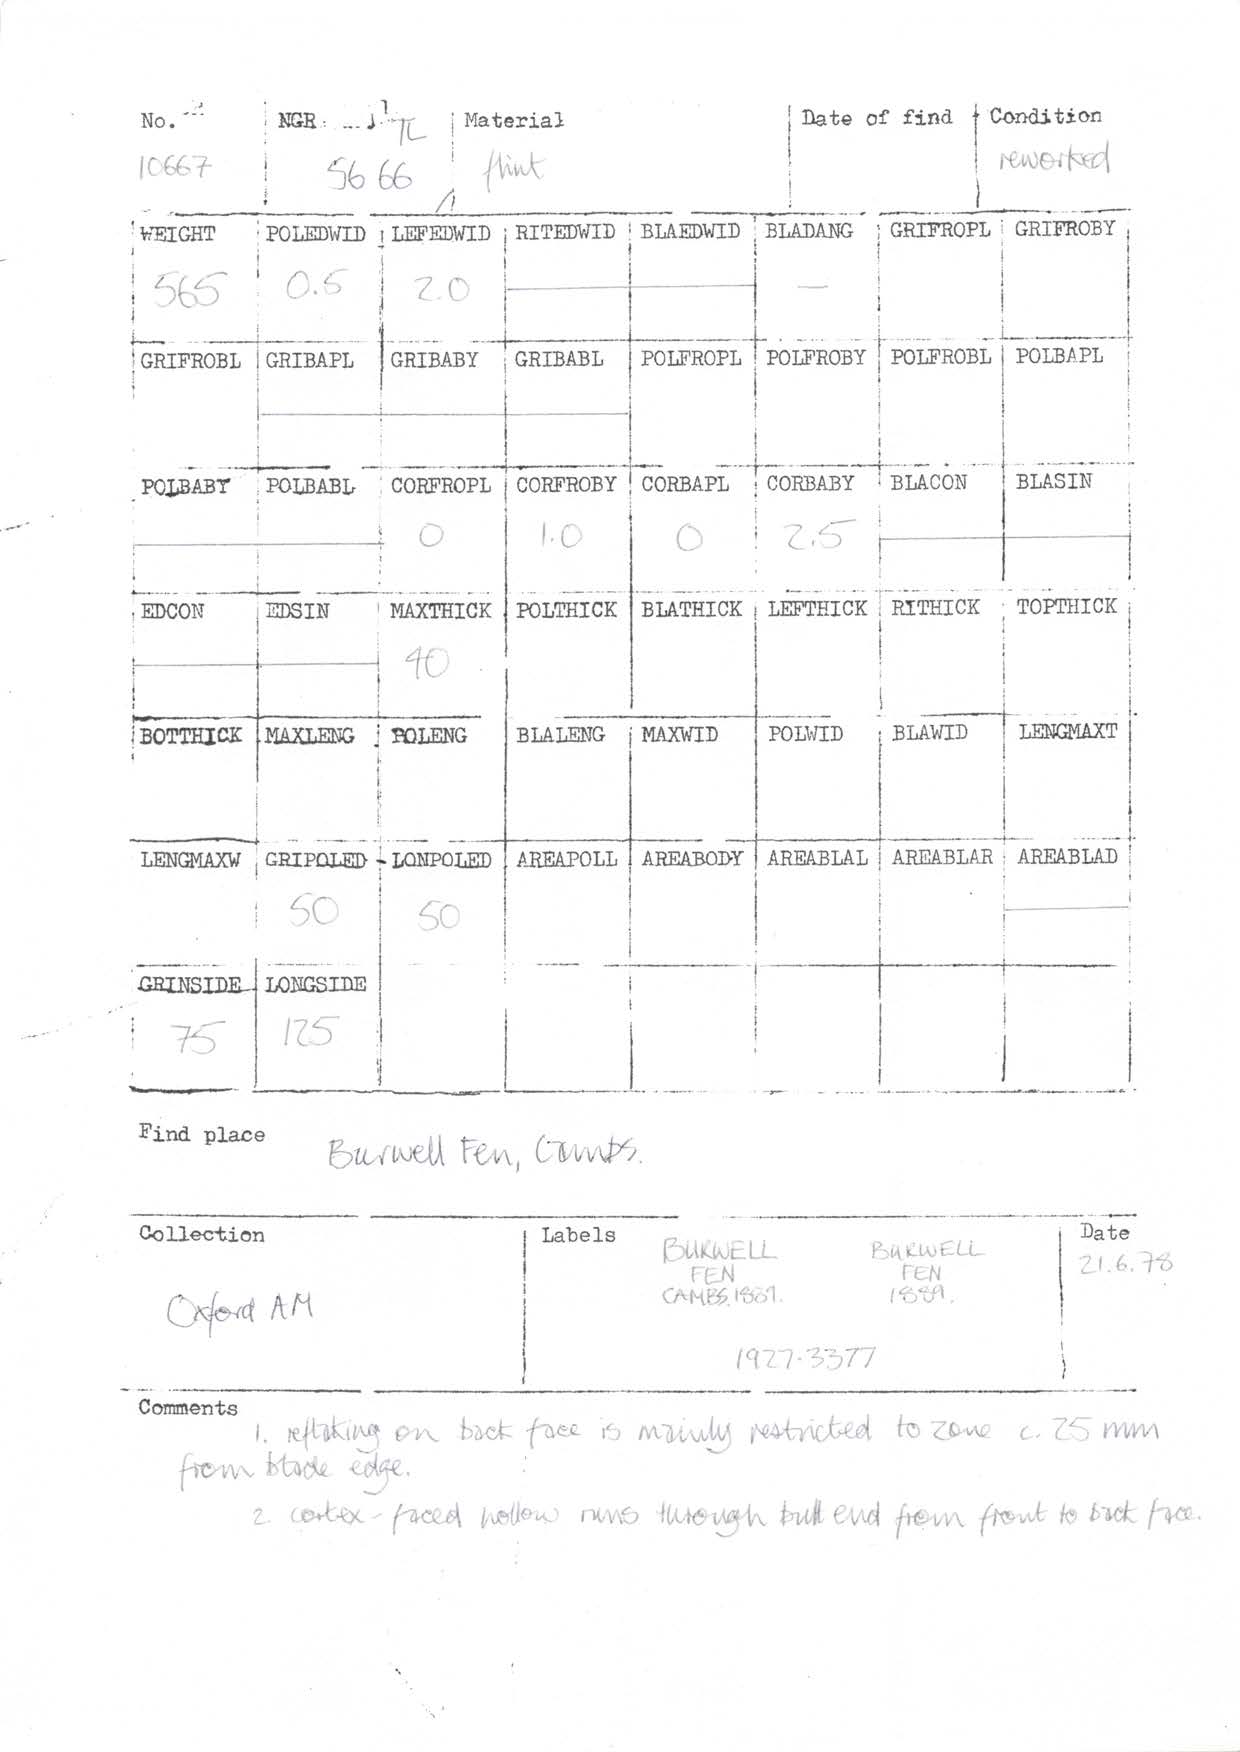 No. NGR: TL Material Date of find Condition
10667 56 66 flint reworked
WEIGHT POLEDWID LEFEDWID RITEDWID BLAEDWID BLADANG GRIFROPL GRIFROBY
565 0.5 2.0 —
GRIFROBL GRIBAPL GRIBABY GRIBABL POLFROPL POLFROBY POLFROBL POLBAPL
POLBABY POLBABL CORFROPL CORFROBY CORBAPL CORBABY BLACON BLASIN
0 1.0 0 2.5
EDCON EDSIN MAXTHICK POLTHICK BLATHICK LEFTHICK RITHICK TOPTHICK
40
BOTTHICK MAXLENG POLENG BLALENG MAXWID POLWID BLAWID LENGMAXT
LENGMAXW GRIPOLED LONPOLED AREAPOLL AREABODY AREABLAL AREABLAR AREABLAD
50 50
GRINSIDE LONGSIDE
75 125
Find place Burwell Fen, Cambs.
Collection Labels Date
BURWELL BURWELL 21.6.78
FEN FEN
CAMBS. 1889. 1889.
Oxford AM
1927-3377
Comments
1. reflaking on back face is mainly restricted to zone c. 25 mm
from blade edge.
2. cortex-faced hollow runs through butt end from front to back face.